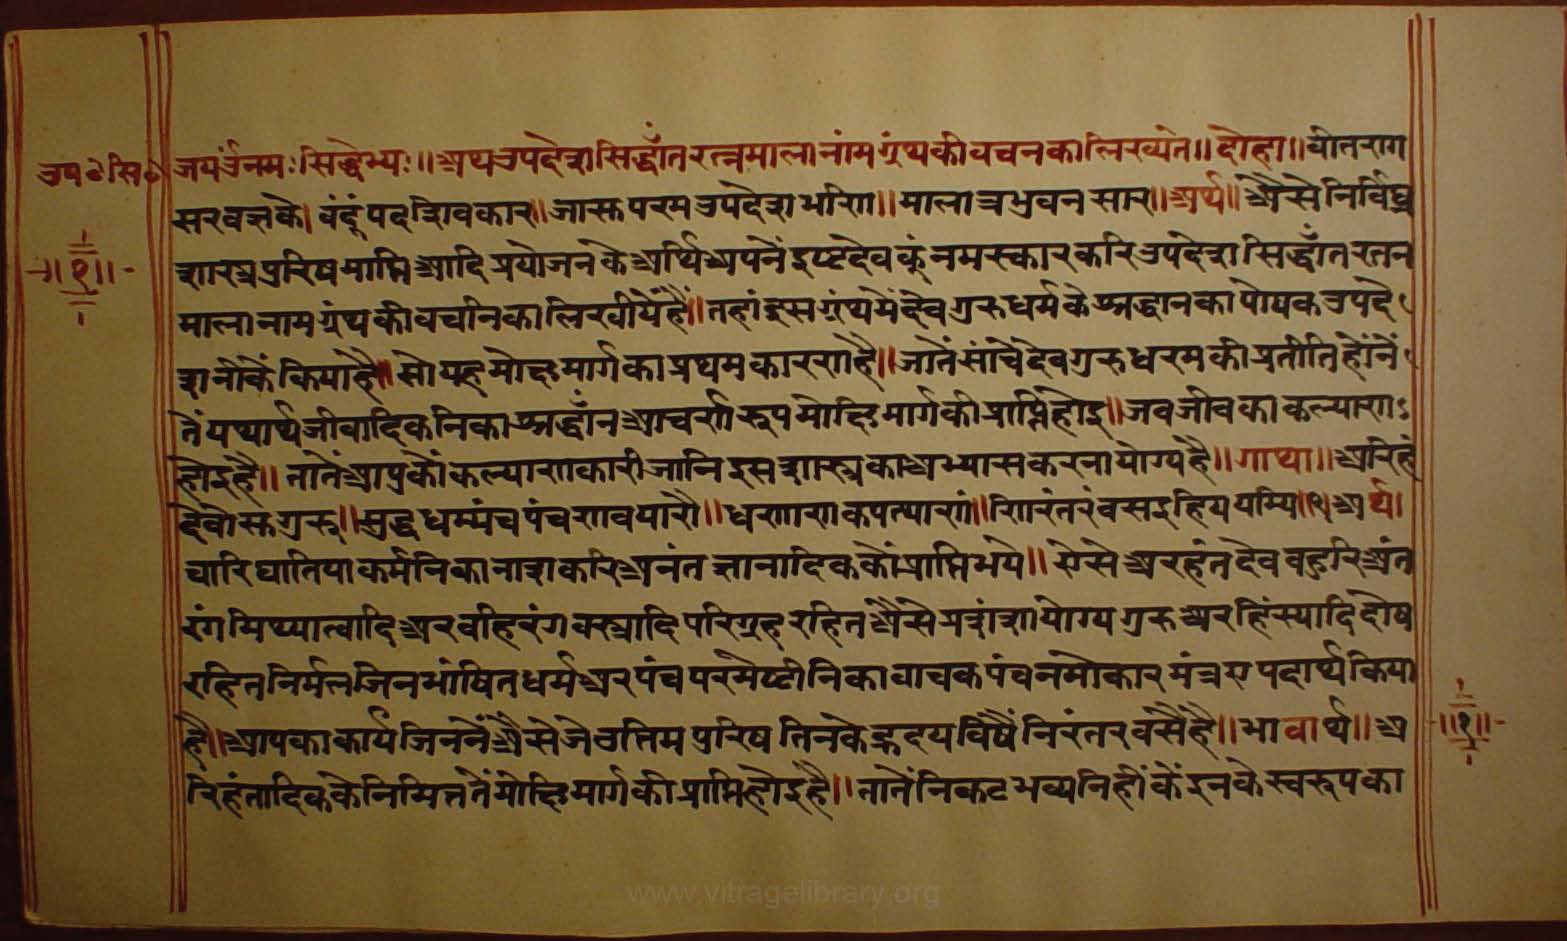 उप॰सि॰
॥१॥
जयॐनमःसिद्धेभ्यः॥अथउपदेशसिद्धाँतरत्नमालानांमग्रंथकीवचनकालिख्यते॥दोहा॥वीतराग
सरवज्ञके।वंदूंपदशिवकार॥जासपरमउपदेशमणि॥मालात्रभुवनसार॥अर्थ॥अैसेनिर्विघ्न
शास्त्रपरिषमाप्तिआदिप्रयोजनकेअर्थिअपनेंइष्टदेवकुंनमस्कारकरिउपदेशसिद्धाँतरतन
मालानामग्रंथकीवचनिकालिखीयेंहैं॥तहांइसग्रंथमेंदेवगुरुधर्मकेश्रद्धानकापोषकउपदे
शनीकेंकियाहै॥सोयहमोक्षमार्गकाप्रथमकारणहै॥जातेंसांचेदेवगुरुधरमकीप्रतीतिहोंनें
तेंयथार्थजीवादिकनिकाश्रद्धाँनआचर्णरूपमोक्षिमार्गकीप्राप्तिहोइ॥जवजीवकाकल्याण
होइहै॥तातेंआपुकौंकल्याणकारीजानिइसशास्त्रकाअभ्यासकरनायोग्यहै॥गाथा॥अरिहं
देवोसुगुरू॥सुद्धधम्मंचपंचणवयारो॥धणाणकयत्थाणं॥णिरंतरंवसइहिययम्मि॥१॥अर्थ।
चारिघातियाकर्मनिकानाशकरिअनंतज्ञानादिककौंप्राप्तिभये॥ऐसेअरहंतदेववहुरिअंत
रंगमिथ्यात्वादिअरवहिरंगवस्त्रादिपरिग्रहरहितअैसेप्रशंशायोग्यगुरुअरहिंस्यादिदोष
रहितनिर्मलजिनभांषितधर्मअरपंचपरमेष्टीनिकावाचकपंचनमोकारमंत्रएपदार्थकिया
है॥आपकाकार्यजिननेंअैसेजेउत्तिमपुरिषतिनकेह्रदयविषैंनिरंतरवसैंहैं॥भावार्थ॥अ
रिहंतादिककेनिमित्ततेंमोक्षिमार्गकीप्राप्तिहोइहै॥तातेंनिकटभव्यनिहींकेंइनकेस्वरूपका
॥१॥
www.vitragelibrary.org